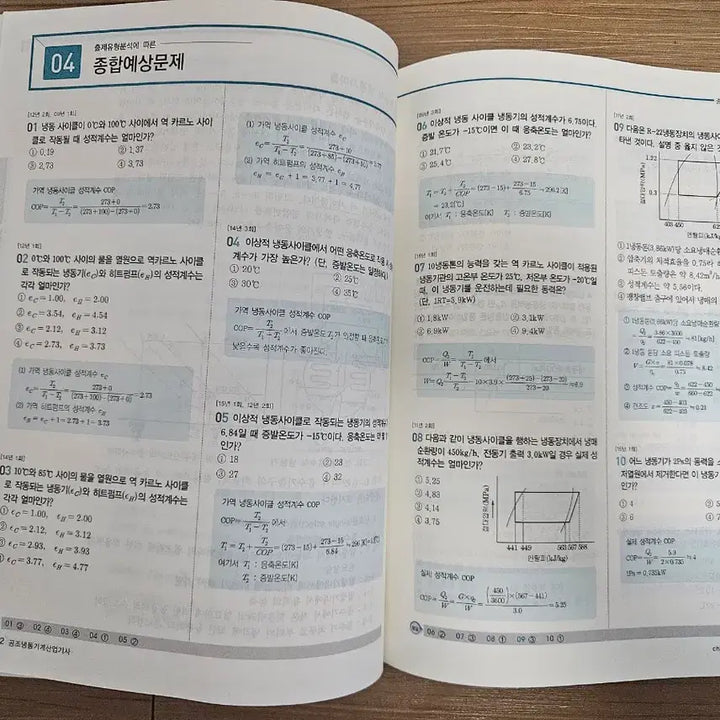 04
출제유형분석에 따른
종합예상문제
01 냉동 사이클이 0℃와 100℃ 사이에서 역 카르노 사이
클로 작동될 때 성적계수는 얼마인가?
① 0.19 ② 1.37
③ 2.73 ④ 3.73
가역 냉동사이클 성적계수 COP
COP= T₂/(T₁-T₂) = (273+0)/((273+100)-(273+0)) = 2.73
[12년 1회]
02 0℃와 100℃ 사이의 물을 열원으로 역카르노 사이클
로 작동되는 냉동기(εC)와 히트펌프(εH)의 성적계수는
각각 얼마인가?
① εC=1.00, εH=2.00
② εC=3.54, εH=4.54
③ εC=2.12, εH=3.12
④ εC=2.73, εH=3.73
(1) 가역 냉동사이클 성적계수 εC
εC= T₂/(T₁-T₂) = (273+0)/((273+100)-(273+0)) = 2.73
(2) 가역 히트펌프의 성적계수 εH
εH=εC+1=2.73+1=3.73
[14년 1회]
03 10℃와 85℃ 사이의 물을 열원으로 역 카르노 사이클
로 작동되는 냉동기(εC)와 히트펌프(εH)의 성적계수는
각각 얼마인가?
① εC=1.00, εH=2.00
② εC=2.12, εH=3.12
③ εC=2.93, εH=3.93
④ εC=3.77, εH=4.77
(1) 가역 냉동사이클 성적계수 εC
εC= T₂/(T₁-T₂) = (273+10)/((273+85)-(273+10)) = 3.77
(2) 가역 히트펌프의 성적계수 εH
εH=εC+1=3.77+1=4.77
[14년 3회]
04 이상적 냉동사이클에서 어떤 응축온도로 작동 시
계수가 가장 높은가? (단, 증발온도는 일정하다)
① 20℃ ② 25℃
③ 30℃ ④ 35℃
가역 냉동사이클 성적계수 COP
COP= T₂/(T₁-T₂) 에서 증발온도 T₂가 일정할 때 응축온도
낮을수록 성적계수가 좋아진다.
[15년 1회, 12년 2회]
05 이상적 냉동사이클로 작동되는 냉동기의 성적계수가
6.84일 때 증발온도가 -15℃이다. 응축온도는
인가?
① 18 ② 23
③ 27 ④ 32
가역 냉동사이클 성적계수 COP
COP= T₂/(T₁-T₂) 에서
T₁=T₂+ T₂/COP =(273-15)+ (273-15)/6.84
여기서 T₁ : 응축온도[K]
T₂ : 증발온도[K]
01 ③ 02 ④ 03 ④ 04 ① 05 ②
2 공조냉동기계산업기사
06 이상적 냉동 사이클 냉동기의 성적계수가 6.75이다.
증발 온도가 -15℃이면 이 때 응축온도는 얼마인가?
① 21.7℃ ② 23.2℃
③ 25.4℃ ④ 27.8℃
T₁=T₂+ T₂/COP =(273-15)+ (273-15)/6.75 =296.2[K]
=23.2[℃]
여기서 T₁ : 응축온도[K] T₂ : 증발온도[K]
07 10냉동톤의 능력을 갖는 역 카르노 사이클이 적용된
냉동기관의 고온부 온도가 25℃, 저온부 온도가 -20℃일
때, 이 냉동기를 운전하는데 필요한 동력은?
(단, 1RT=3.9kW)
① 1.8kW ② 3.1kW
③ 6.9kW ④ 9.4kW
COP= Q₂/W = T₂/(T₁-T₂) 에서
W=Q₂ (T₁-T₂)/T₂ = 10×3.9× ((273+25)-(273-20))/(273-20) =6.9
[11년 2회]
08 다음과 같이 냉동사이클을 행하는 냉동장치에서 냉매
순환량이 450kg/h, 전동기 출력 3.0kW일 경우 실제 성
적계수는 얼마인가?
① 5.25
② 4.83
③ 4.14
④ 3.75
절대압력(MPa)
441 449 563 567 588
엔탈피(kJ/kg)
실제 성적계수 COP
COP= Q₂/W = G×q₂/W = ((450/3600)×(567-441))/3.0 =5.25
09 다음은 R-22냉동장치의 냉동사
타낸 것이다. 설명 중 옳지 않은 것
1.32
0.3
403 450
엔탈피
① 1냉동톤(3.86kW)당 소요냉매순환
② 압축기의 체적효율을 0.75라
피스톤 토출량은 약 8.42m³/
③ 성적계수는 약 5.56이다.
④ 팽창밸브 출구에 있어서 냉매의
② 1냉동톤 당 소요 피스톤 토출량
③ 성적계수 COP=
④ 건조도 x=
[15년 1회]
10 어느 냉동기가 2Ps의 동력을 소
저열원에서 제거한다면 이 냉동기
인가?
① 4
③ 6
실제 성적계수 COP
COP= Q₂/W = 5.9/(2×0.735) ≒4
1Ps=0.735kW
06 ② 07 ③ 08 ① 09 ③ 10 ①